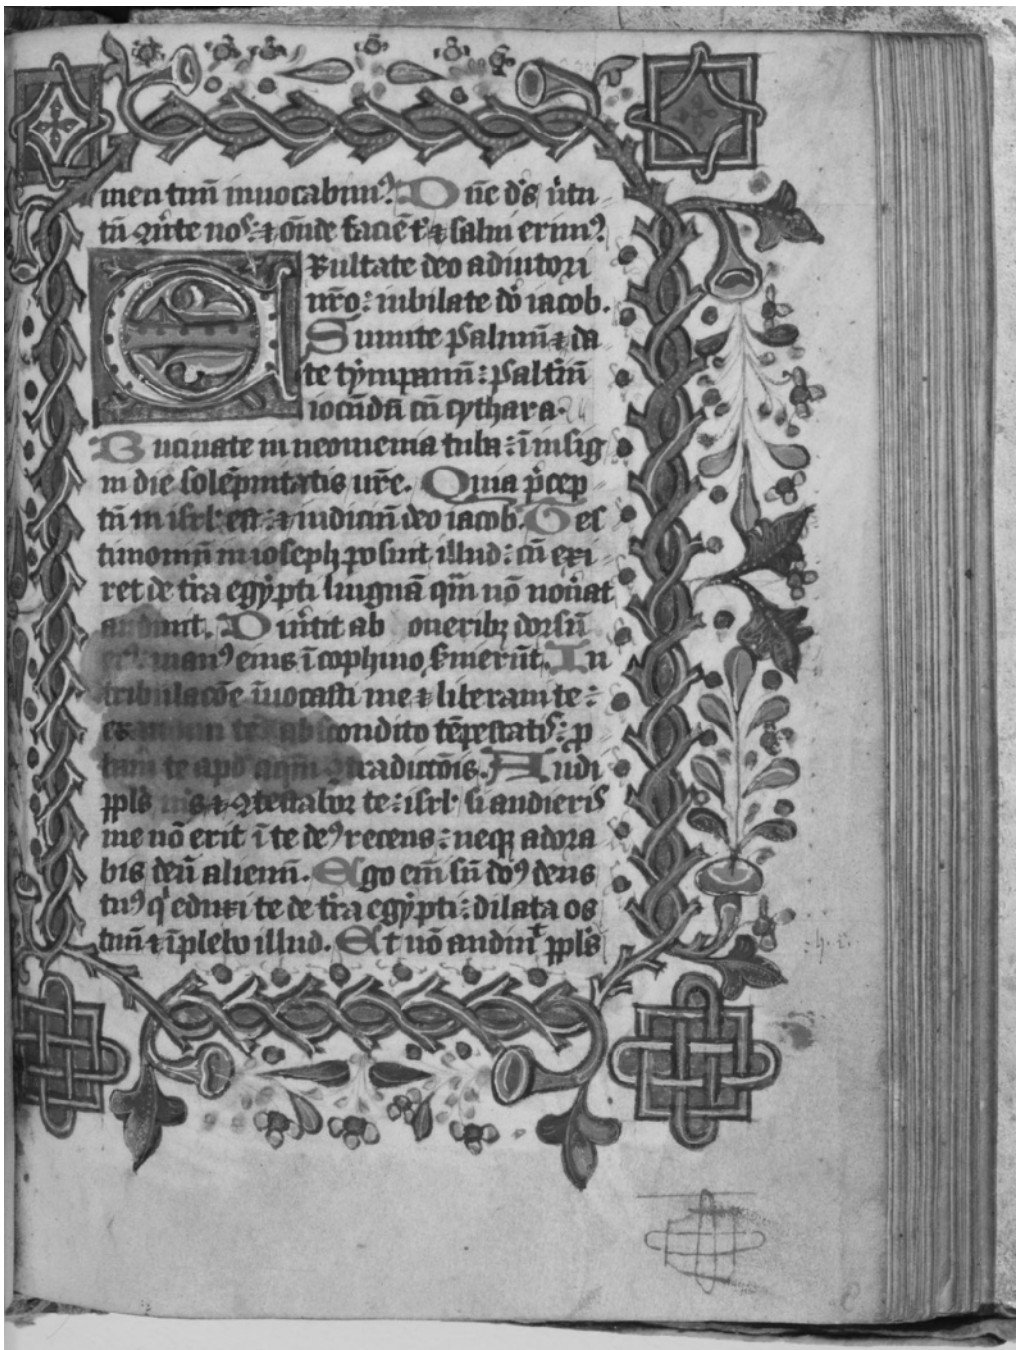 men tuū inuocabimꝰ. Dn̄e ds̄ u̓tu
tū ꝯu̓te nos: ⁊ on̄de faciē t᷑ ⁊ salui erimꝰ
Exultate deo adiutori
nr̄o: iubilate dō iacob.
Sumite psalmū ⁊ da
te tympanū: psaltiū
iocūdū cū cythara.
Bucinate in neomenia tuba: ī insig
ni die solēpnitatis ur̄e. Quia p̄cep
tū in isrl̓ est: ⁊ iudiciū deo iacob. Tes
timoniū in ioseph posuit illud: cū exi
ret de tr̄a egypti linguā qm̄ nō nou̓at
audiuit. Diu̓tit ab oneribꝫ dorsū
eiꝰ: manꝰ eius ī cophino s̓uierūt. In
tribulacōe īuocasti me ⁊ liberaui te:
exaudiui te ī abscondito tēpestatis: p̄
baui te apd̓ aquā ꝯtradictōis. Audi
ppl̓s ꝯtestabor te: isrl̓ si audieris
me nō erit ī te deꝰ recens: neqꝫ adora
bis deū alienū. Ego em̄ sū dn̄s deus
tuꝰ q̓ eduxi te de tr̄a egypti: dilata os
tuū ⁊ īplebo illud. Et nō audiuit ppl̓s